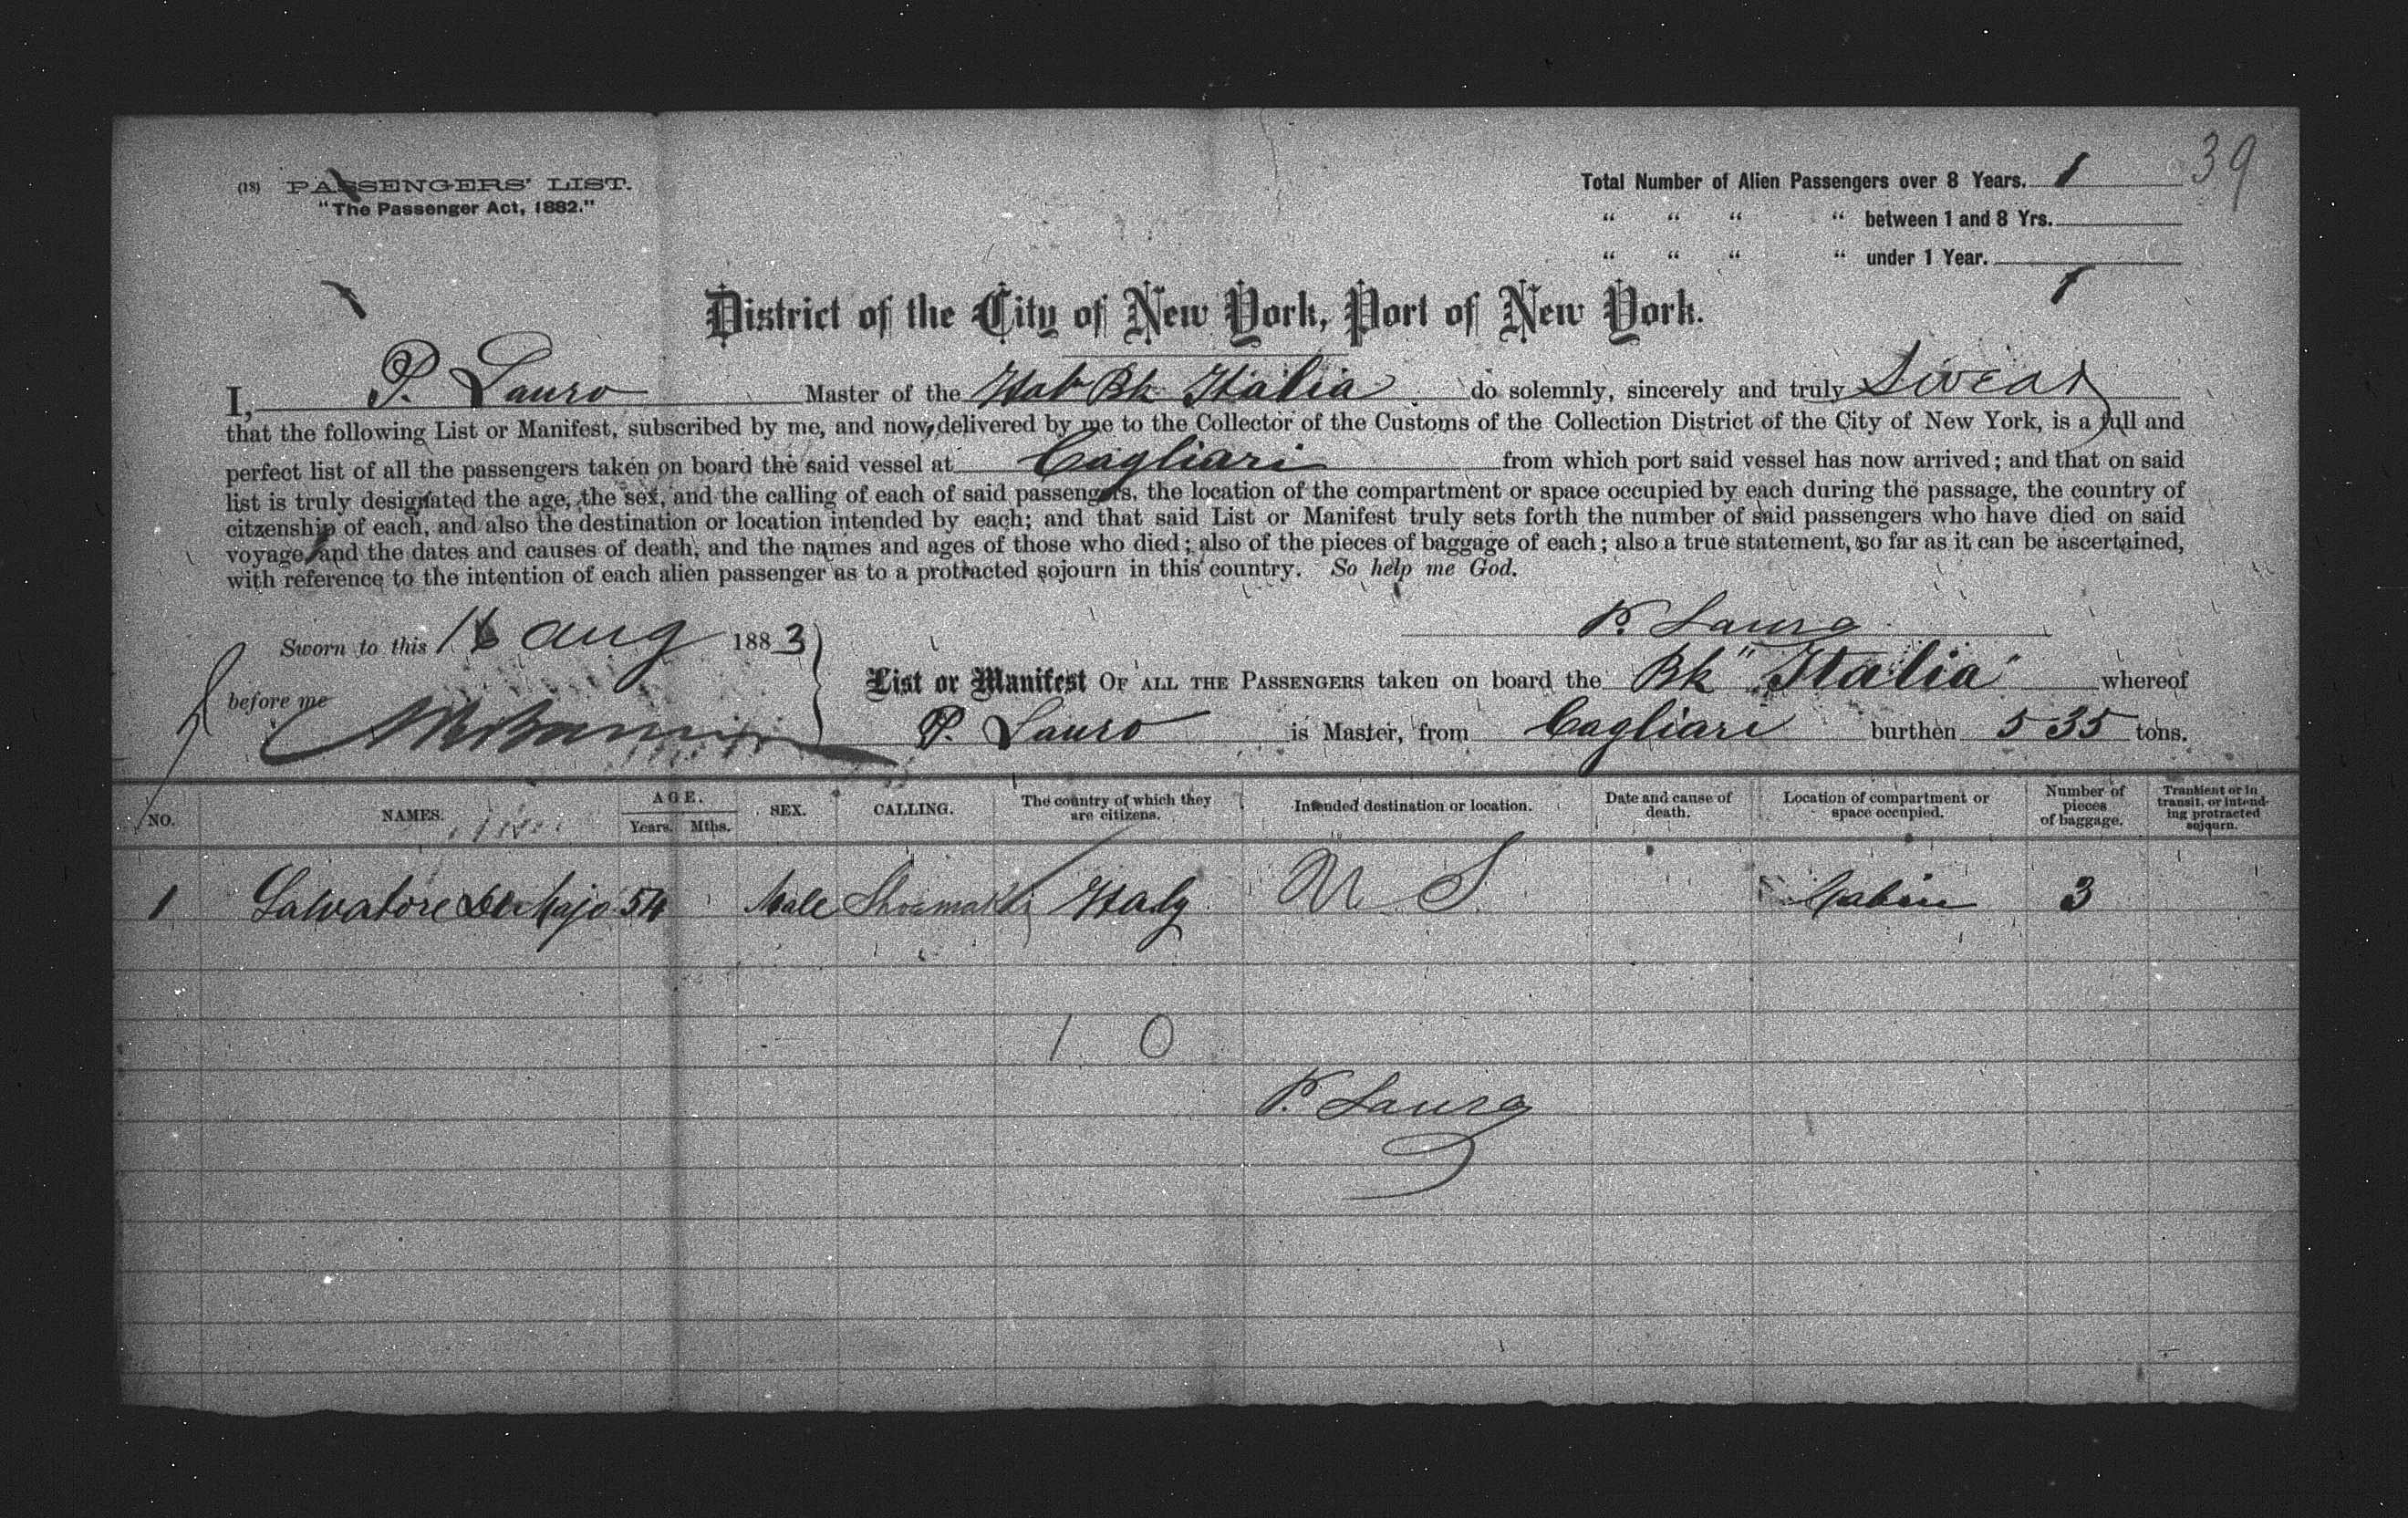 39
(18) PASSENGERS' LIST.
"The Passenger Act, 1882."
Total Number of Alien Passengers over 8 Years. 1
" " " " between 1 and 8 Yrs.
" " " " under 1 Year.
1
District of the City of New York, Port of New York.
I, P. Lauro Master of the Ital Bk Italia do solemnly, sincerely and truly Swear
that the following List or Manifest, subscribed by me, and now delivered by me to the Collector of the Customs of the Collection District of the City of New York, is a full and
perfect list of all the passengers taken on board the said vessel at Cagliari from which port said vessel has now arrived; and that on said
list is truly designated the age, the sex, and the calling of each of said passengers, the location of the compartment or space occupied by each during the passage, the country of
citzenship of each, and also the destination or location intended by each; and that said List or Manifest truly sets forth the number of said passengers who have died on said
voyage, and the dates and causes of death, and the names and ages of those who died; also of the pieces of baggage of each; also a true statement, so far as it can be ascertained,
with reference to the intention of each alien passenger as to a protracted sojourn in this country. So help me God.
P. Lauro
Sworn to this 16 Aug 1883
before me
List or Manifest OF ALL THE PASSENGERS taken on board the Bk "Italia" whereof
P. Lauro is Master, from Cagliari burthen 535 tons.
NO. NAMES. AGE. Years. Mths. SEX. CALLING. The country of which they are citizens. Intended destination or location. Date and cause of death. Location of compartment or space occupied. Number of pieces of baggage. Transient or in transit, or intending protracted sojourn.
1 Salvatore De Majo 54 Male Shoemaker Italy U S Cabin 3
1 0
P. Lauro